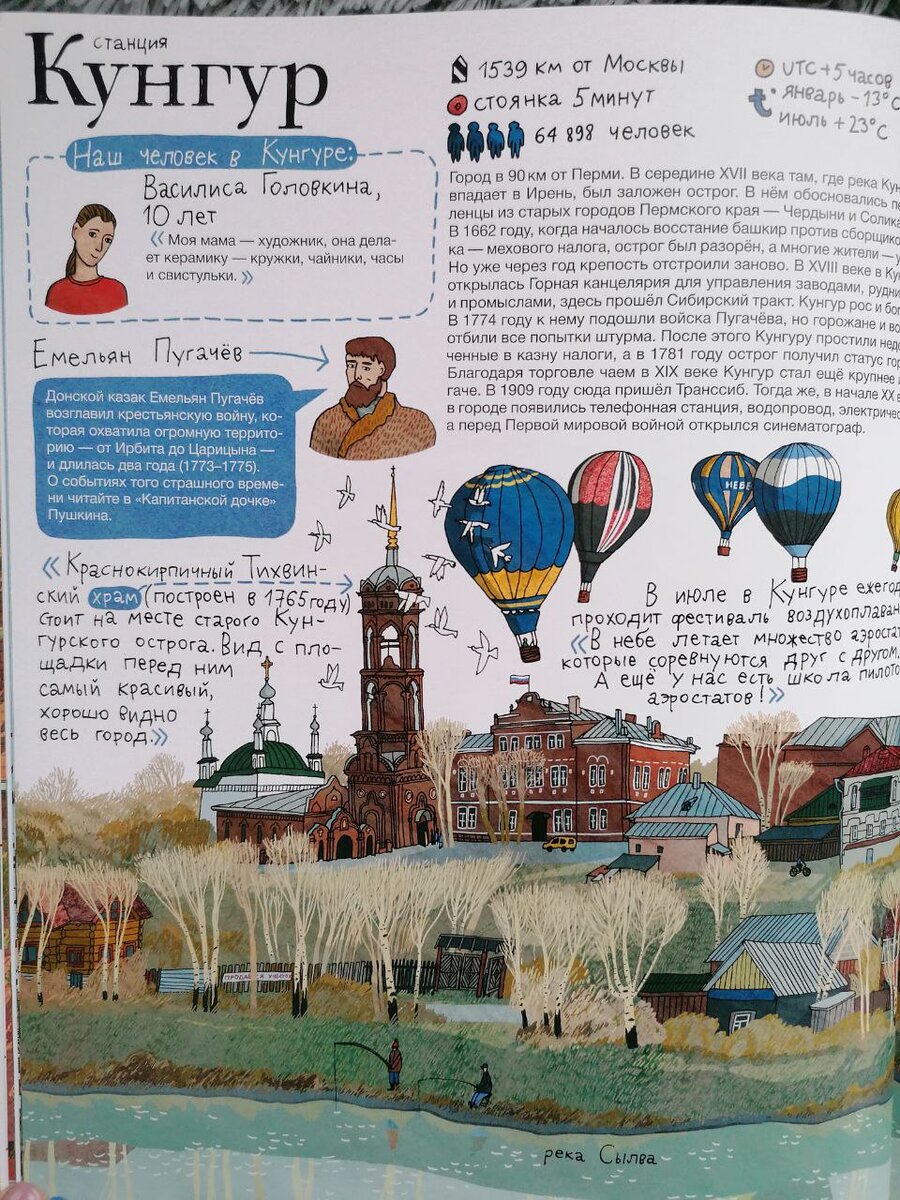 станция
Кунгур
1539 км от Москвы
стоянка 5 минут
64 898 человек
UTC+5 часов
январь -13°C
июль +23°C
Наш человек в Кунгуре:
Василиса Головкина,
10 лет
«Моя мама — художник, она дела-
ет керамику — кружки, чайники, часы
и свистульки.»
Емельян Пугачёв
Донской казак Емельян Пугачёв
возглавил крестьянскую войну, ко-
торая охватила огромную террито-
рию — от Ирбита до Царицына —
и длилась два года (1773–1775).
О событиях того страшного време-
ни читайте в «Капитанской дочке»
Пушкина.
Город в 90 км от Перми. В середине XVII века там, где река Кун
впадает в Ирень, был заложен острог. В нём обосновались пе
ленцы из старых городов Пермского края — Чердыни и Солика
В 1662 году, когда началось восстание башкир против сборщико
ка — мехового налога, острог был разорён, а многие жители — у
Но уже через год крепость отстроили заново. В XVIII веке в Кун
открылась Горная канцелярия для управления заводами, рудни
и промыслами, здесь прошёл Сибирский тракт. Кунгур рос и бог
В 1774 году к нему подошли войска Пугачёва, но горожане и во
отбили все попытки штурма. После этого Кунгуру простили недо
ченные в казну налоги, а в 1781 году острог получил статус гор
Благодаря торговле чаем в XIX веке Кунгур стал ещё крупнее и
гаче. В 1909 году сюда пришёл Транссиб. Тогда же, в начале XX в
в городе появились телефонная станция, водопровод, электричес
а перед Первой мировой войной открылся синематограф.
«Краснокирпичный Тихвин-
ский храм (построен в 1765 году)
стоит на месте старого Кун-
гурского острога. Вид с пло-
щадки перед ним
самый красивый,
хорошо видно
весь город.»
НЕБЕ
В июле в Кунгуре ежегод
проходит фестиваль воздухоплаван
«В небе летает множество аэростат
которые соревнуются друг с другом.
А ещё у нас есть школа пилото
аэростатов!»
река Сылва